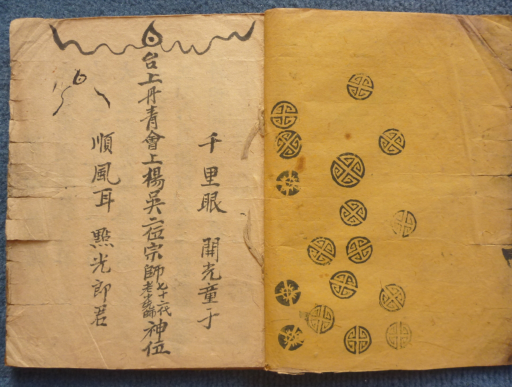 千里眼 開光童子
台上丹青會上楊吳二位宗師七十代老少先師神位
順風耳 點光郎君